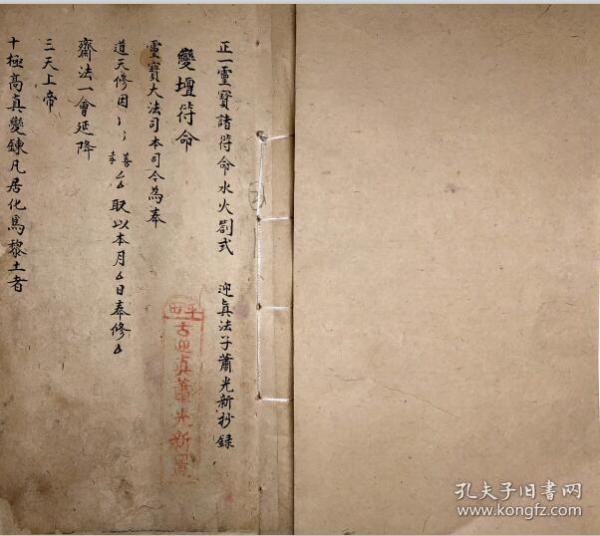 正一靈寶諸符命水火劄式 迎真法子蕭光新抄錄
變壇符命
靈寶大法司本司今為奉
道天修因
取以本月厶日奉修厶
齋法一會延降
三天上帝
十極高真變鍊凡居化為黎土者
蕭光新置
孔夫子旧书网
www.kongfz.com